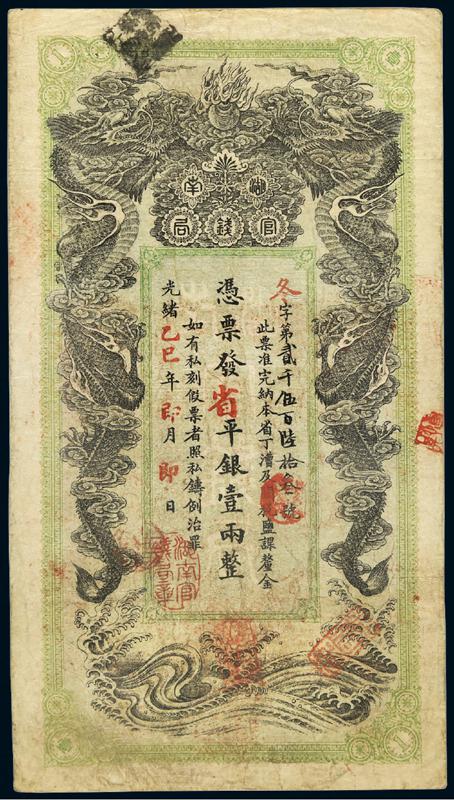 1
湖南
官錢局
冬字第貳千伍百陸拾叁號
此票准完納本省丁漕及鹽課釐金
憑票發省平銀壹兩整
如有私刻假票者照私鑄例治罪
光緒乙巳年即月即日
湖南官
1